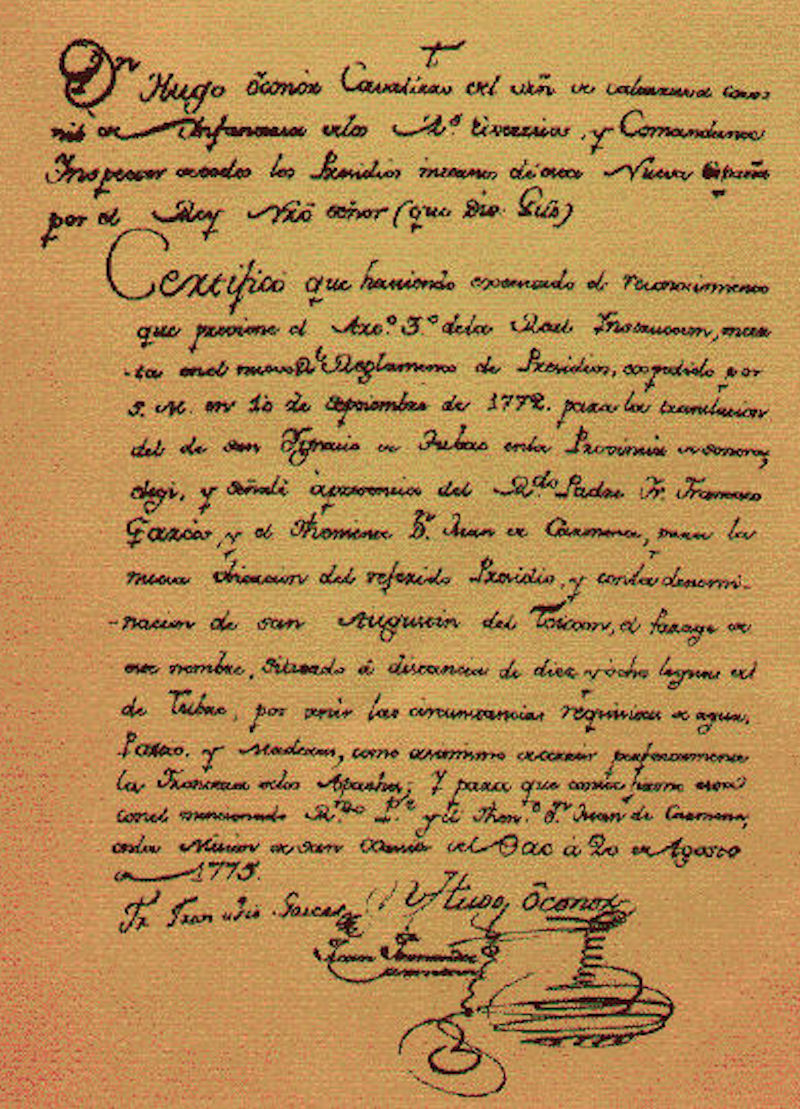 †
Dn Hugo Oconòr Cavallero del orñ de calatrava coro-
nèl de Infanteria de los Rs exercitos, y Comandante
Inspector de todos los Presidios internos de esta Nueva España
por el Rey Nrô señor (que Dios Güe)
Certifico que haviendo executado el reconocimiento
que previene el Arto 3.º de la Real Instruccion, inser-
-ta en el nuevo Rl Reglamento de Presidios, expedido por
S. M. en 10 de septiembre de 1772. para la translacion
del de san Ygnacio de Tubac en la Provincia de sonora;
elegi, y señalè à presencia del R.do Padre Fr. Francisco
Garcès, y el Theniente Dn. Juan de Carmona, para la
nueva situacion del referido Presidio, y con la denomi-
-nacion de san Augustin del Toixon, el parage de
este nombre, situado à distancia de diez y ocho leguas del
de Tubac, por tener las circunstancias requisitas de agua,
Pasto, y Maderas, como assimismo a cerrar perfectamente
la Frontera de los Apaches; Y para que conste firmè
con el mencionado R.do P.e y el Then.te Dn. Juan de Carmona,
en la Mision de san Xavier del Bac à 20 de Agosto
de 1775.
Fr. Fran.co Garces Hugo Oconòr
Juan Fernandez
Carmona